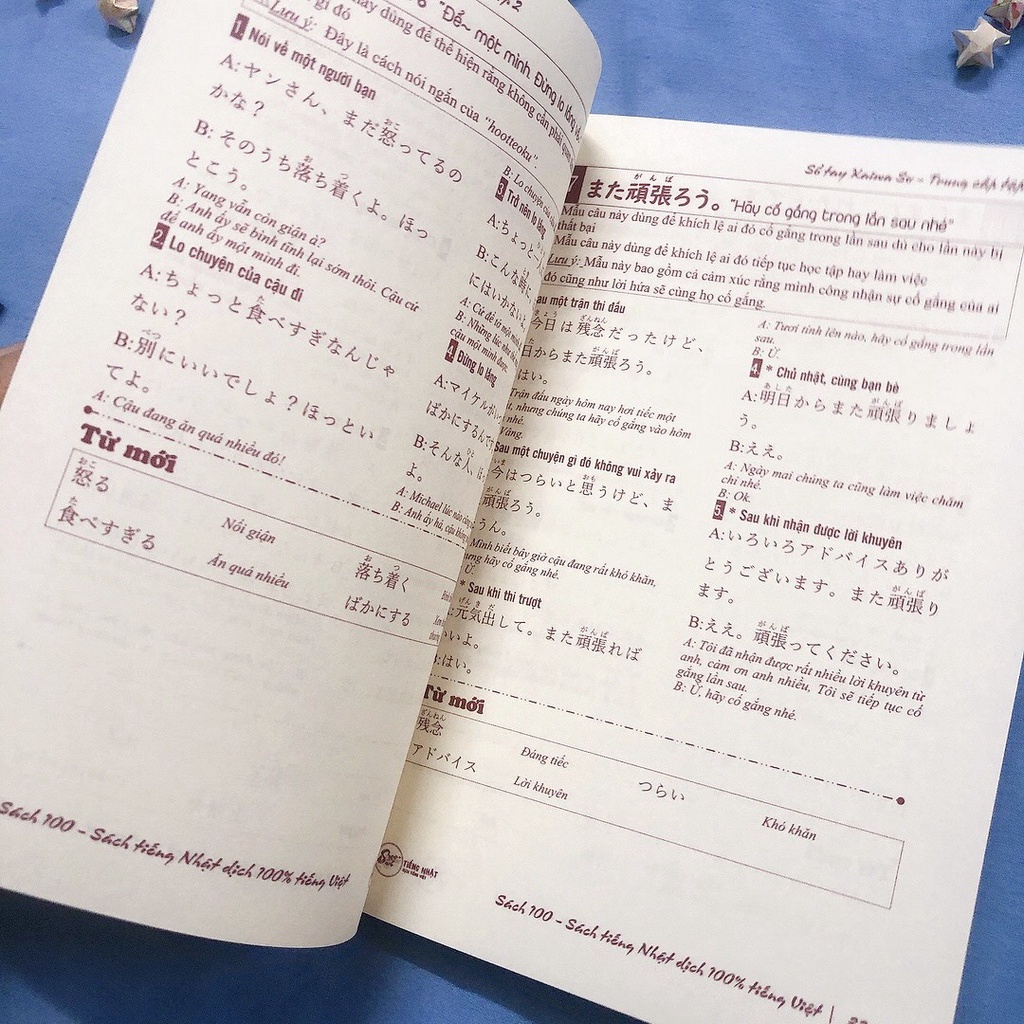 "Để~ một mình. Đừng lo lắng về
này dùng để thể hiện rằng không cần phải quan
gì đó
Lưu ý: Đây là cách nói ngắn của "hootteoku".
1 Nói về một người bạn
A:ヤンさん、まだ怒ってるの
かな?
B:そのうち落ち着くよ。ほっ
とこう。
A: Yang vẫn còn giận à?
B: Anh ấy sẽ bình tĩnh lại sớm thôi. Cậu cứ
để anh ấy một mình đi.
2 Lo chuyện của cậu đi
A:ちょっと食べすぎなんじゃ
ない?
B:別にいいでしょ?ほっとい
てよ。
A: Cậu đang ăn quá nhiều đó!
B: Lo chuyện của
3 Trở nên lo lắng
A:ちょっと
B:こんな時に
にはいかない
A: Cứ để tớ một mình
B: Những lúc như
cậu một mình được.
4 Đừng lo lắng
A:マイケルが
ばかにするんです
B:そんな人、ほ
よ。
A: Michael lúc nào cũng
B: Anh ấy hả, cậu không
Từ mới
怒る
Nổi giận
落ち着く
食べすぎる
Ăn quá nhiều
ばかにする
Sổ tay Kaiwa Sơ - Trung cấp
7 また頑張ろう。"Hãy cố gắng trong lần sau nhé"
Mẫu câu này dùng để khích lệ ai đó cố gắng trong lần sau dù cho lần này bị
thất bại
Mẫu câu này dùng để khích lệ ai đó tiếp tục học tập hay làm việc
Lưu ý: Mẫu này bao gồm cả cảm xúc rằng mình công nhận sự cố gắng của ai
đó cũng như lời hứa sẽ cùng họ cố gắng.
Sau một trận thi đấu
今日は残念だったけど、
日からまた頑張ろう。
はい。
Trận đấu ngày hôm nay hơi tiếc một
, nhưng chúng ta hãy cố gắng vào hôm
nhé.
Vâng.
Sau một chuyện gì đó không vui xảy ra
今はつらいと思うけど、ま
頑張ろう。
うん。
Mình biết bây giờ cậu đang rất khó khăn,
nhưng hãy cố gắng nhé.
Ừ.
* Sau khi thi trượt
元気出して。また頑張れば
いいよ。
B:はい。
A: Tươi tỉnh lên nào, hãy cố gắng trong lần
sau.
B: Ừ.
4. * Chủ nhật, cùng bạn bè
A:明日からまた頑張りましょ
う。
B:ええ。
A: Ngày mai chúng ta cũng làm việc chăm
chỉ nhé.
B: Ok.
5. * Sau khi nhận được lời khuyên
A:いろいろアドバイスありが
とうございます。また頑張り
ます。
B:ええ。頑張ってください。
A: Tôi đã nhận được rất nhiều lời khuyên từ
anh, cảm ơn anh nhiều. Tôi sẽ tiếp tục cố
gắng lần sau.
B: Ừ, hãy cố gắng nhé.
Từ mới
残念
Đáng tiếc
つらい
Khó khăn
アドバイス
Lời khuyên
Sách 100 - Sách tiếng Nhật dịch 100% tiếng Việt
TIẾNG NHẬT
Sách 100 - Sách tiếng Nhật dịch 100% tiếng Việt |